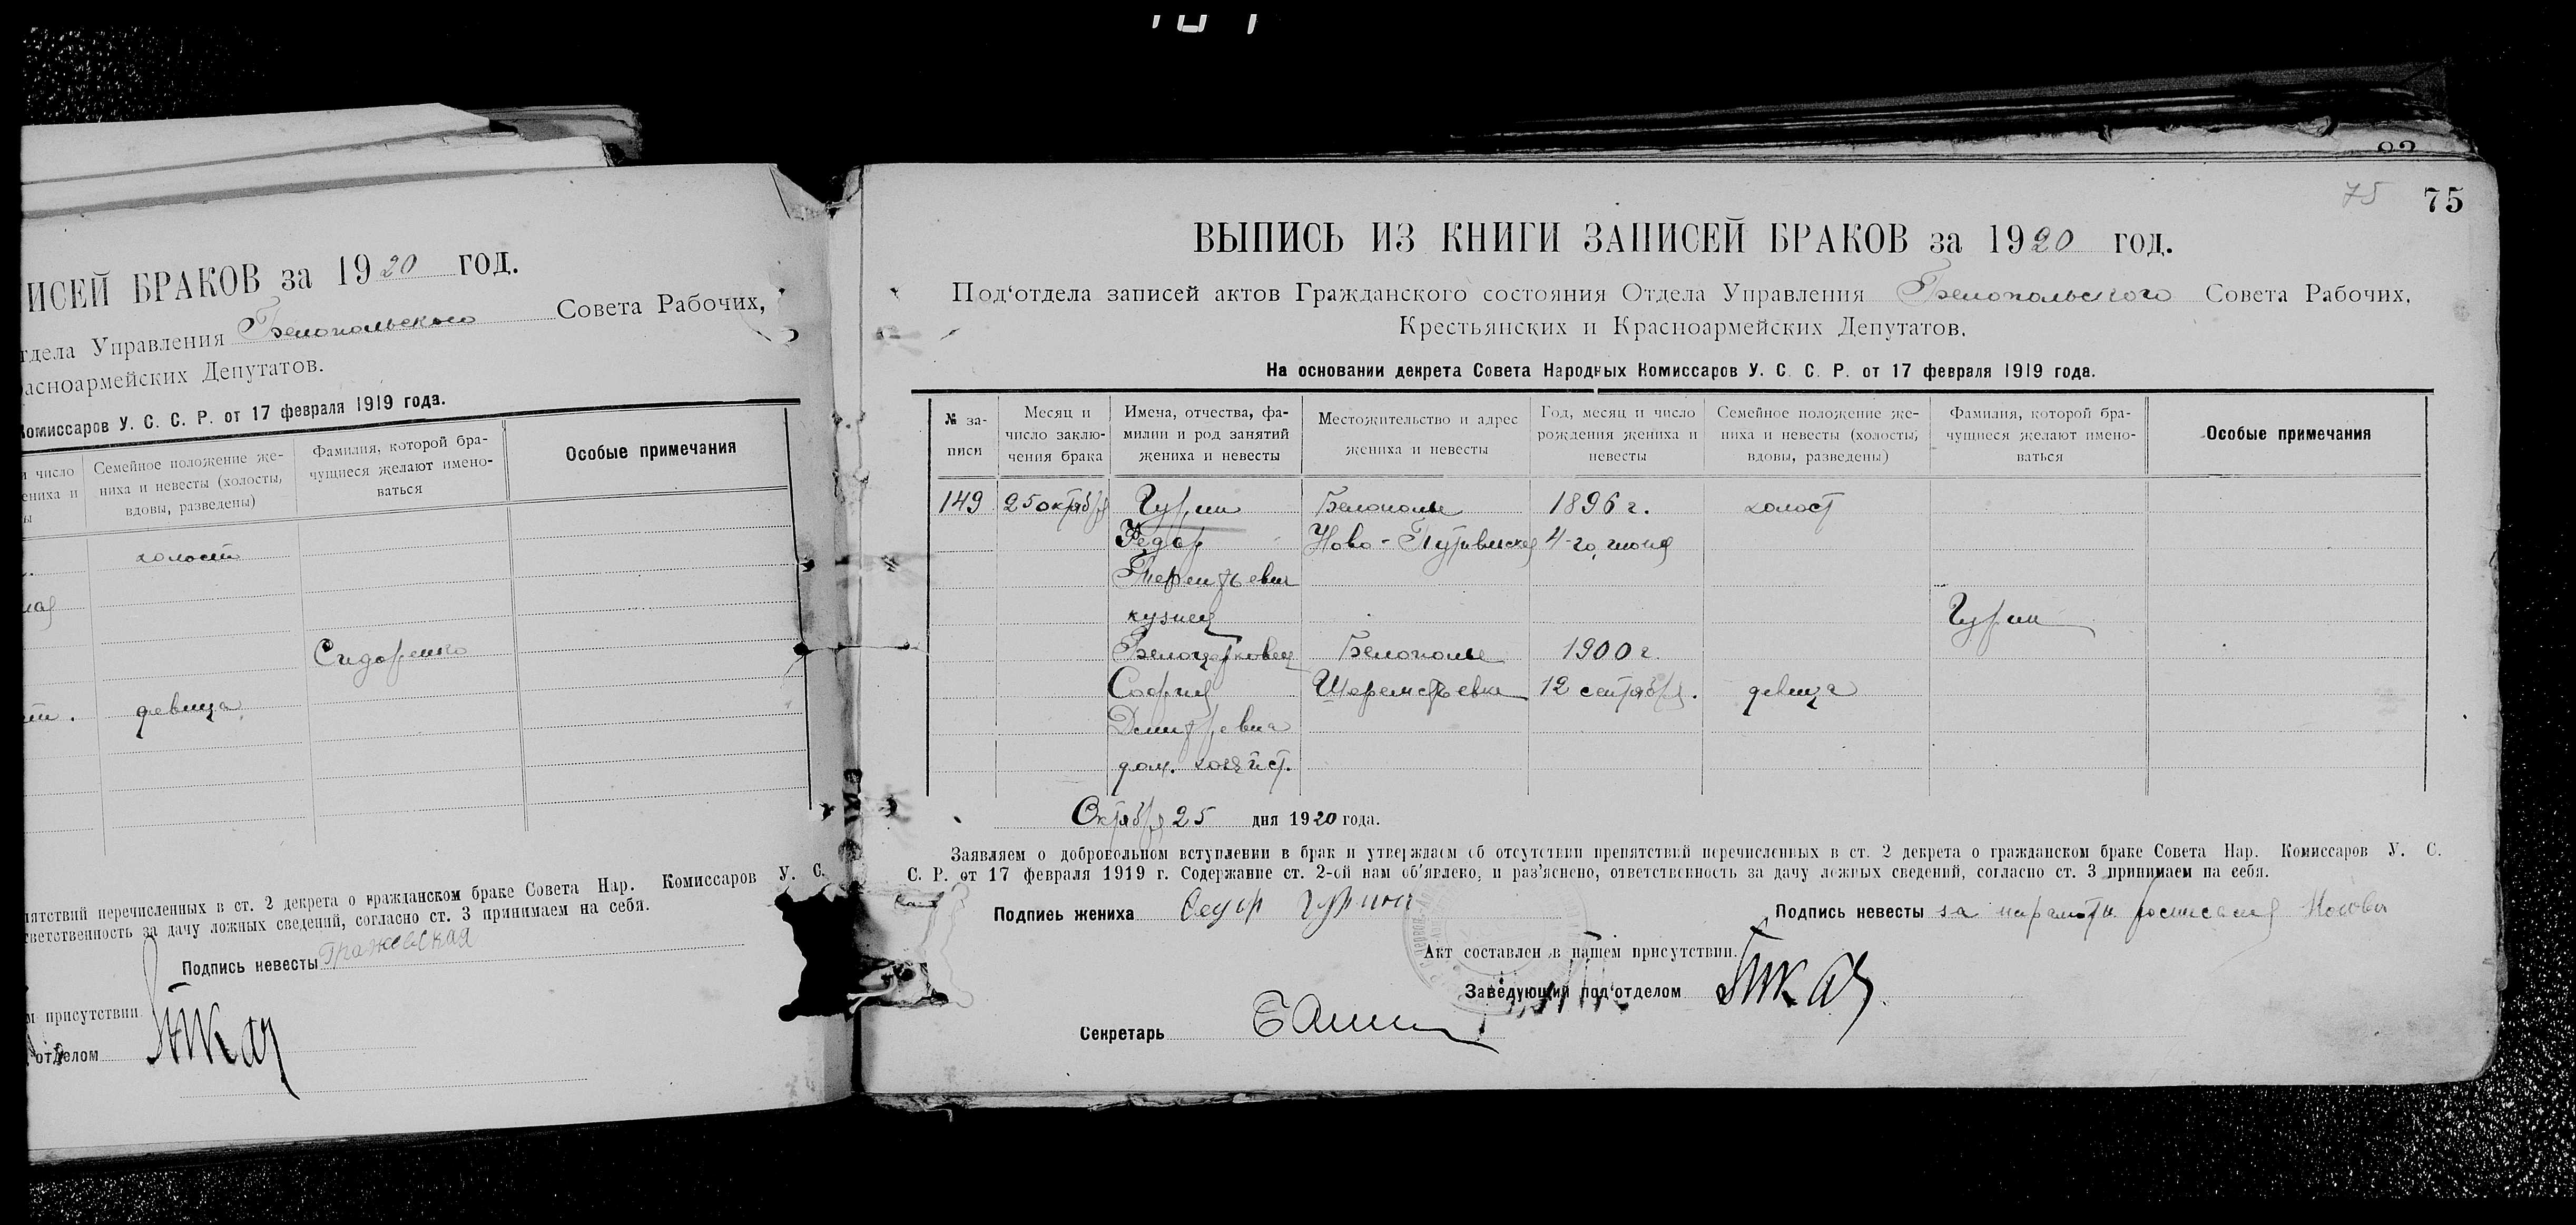 ИСЕЙ БРАКОВ за 1920 год.
тдела Управления Белопольского Совета Рабочих,
расноармейских Депутатов.
Комиссаров У. С. С. Р. от 17 февраля 1919 года.
и число
ениха и
ы
Семейное положение же-
ниха и невесты (холосты,
вдовы, разведены)
Фамилия, которой бра-
чущиеся желают имено-
ваться
Особые примечания
холост
Сидоренко
девица
пятствий перечисленных в ст. 2 декрета о гражданском браке Совета Нар. Комиссаров У. С.
тветственность за дачу ложных сведений, согласно ст. 3 принимаем на себя.
Подпись невесты Гражевская
м присутствии
отделом
75 75
ВЫПИСЬ ИЗ КНИГИ ЗАПИСЕЙ БРАКОВ за 1920 год.
Под'отдела записей актов Гражданского состояния Отдела Управления Белопольского Совета Рабочих,
Крестьянских и Красноармейских Депутатов.
На основании декрета Совета Народных Комиссаров У. С. С. Р. от 17 февраля 1919 года.
№ за-
писи
Месяц и
число заклю-
чения брака
Имена, отчества, фа-
милии и род занятий
жениха и невесты
Местожительство и адрес
жениха и невесты
Год, месяц и число
рождения жениха и
невесты
Семейное положение же-
ниха и невесты (холосты,
вдовы, разведены)
Фамилия, которой бра-
чущиеся желают имено-
ваться
Особые примечания
149 25 октября Гурин Белополье 1896 г. холост
Федор Ново-Путивльская 4-го, июня
Терентьевич
кузнец Гурин
Белоцерковец Белополье 1900 г.
София Шереметьевка 12 сентября. девица
Дмитревна
дом. хозяйст.
Октября 25 дня 1920 года.
Заявляем о добровольном вступлении в брак и утверждаем об отсутствии препятствий перечисленных в ст. 2 декрета о гражданском браке Совета Нар. Комиссаров У. С.
С. Р. от 17 февраля 1919 г. Содержание ст. 2-ой нам об'явлено, и раз'яснено, ответственность за дачу ложных сведений, согласно ст. 3 принимаем на себя.
Подпись жениха Федор Гурин
Подпись невесты за неграмотн. росписался
Акт составлен в нашем присутствии.
Заведующий под'отделом
Секретарь